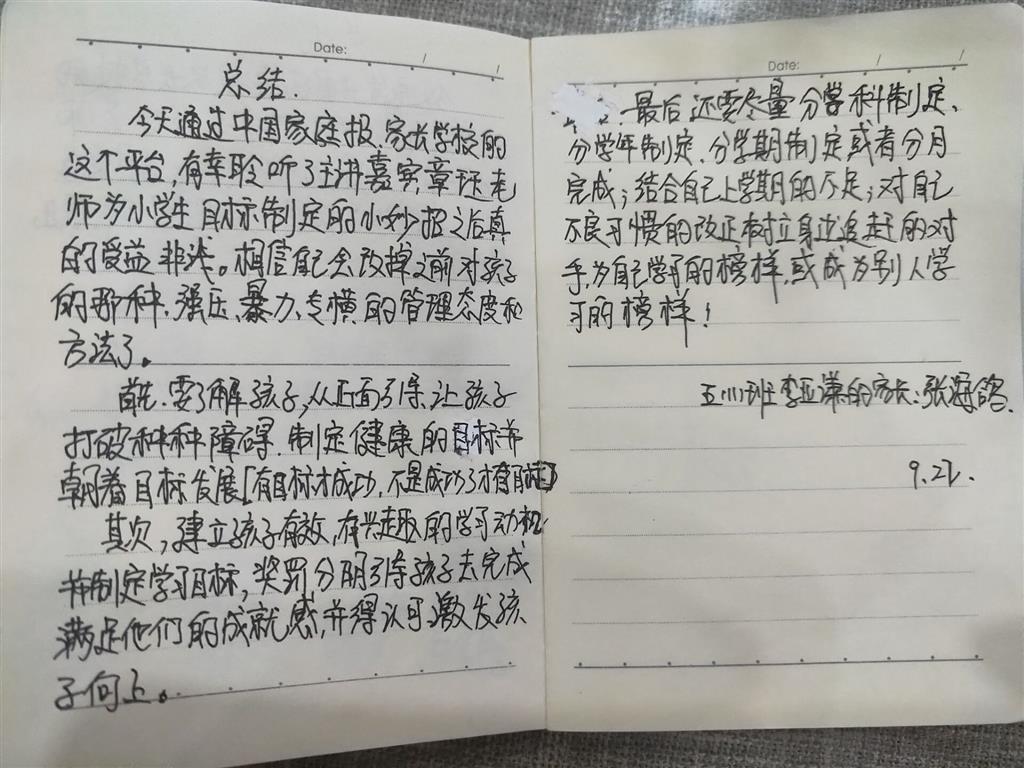 Date: / /
总结.
今天通过中国家庭报.家长学校的
这个平台,有幸聆听了主讲嘉宾章钰老
师为小学生目标制定的小妙招之后真
的受益非浅。相信自己会改掉之前对孩子
的那种.强压、暴力、专横的管理态度和
方法了。
首先.要了解孩子,从正面引导.让孩子
打破种种障碍.制定健康的目标并
朝着目标发展[有目标才成功,不是成功了才有目标]
其次,建立孩子有效,有兴趣的学习动机
并制定学习目标,奖罚分明引导孩子去完成
满足他们的成就感,并得认可激发孩
子向上。
Date: / /
最后还要尽量分学科制定、
分学年制定.分学期制定或者分月
完成;结合自己上学期的不足;对自己
不良习惯的改正树立身边追赶的对
手,为自己学习的榜样.或成为别人学
习的榜样!
五(1)班李亚潇的家长:张
9.22.